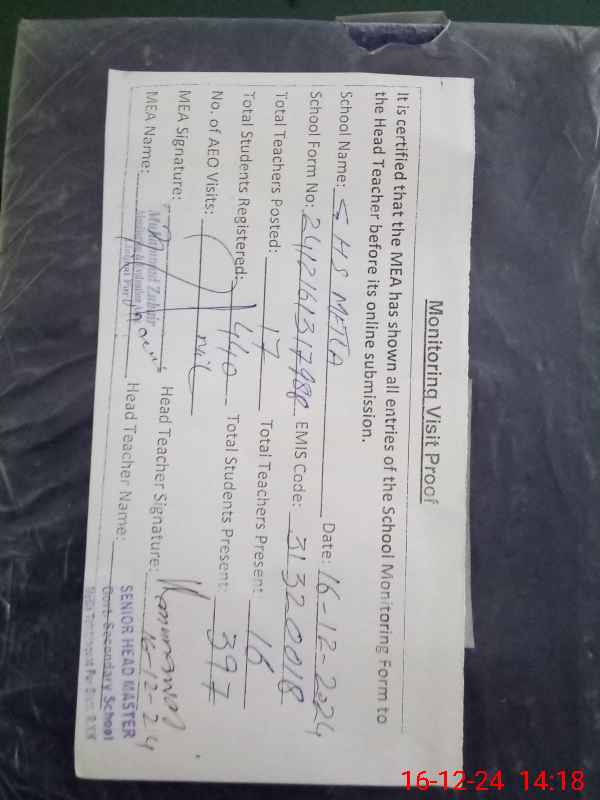 Monitoring Visit Proof
It is certified that the MEA has shown all entries of the School Monitoring Form to
the Head Teacher before its online submission.
School Name: GHS META Date: 16-12-2024
School Form No: EMIS Code: 31320018
Total Teachers Posted: 17 Total Teachers Present: 16
Total Students Registered: 440 Total Students Present: 397
No. of AEO Visits: nil
MEA Signature: Head Teacher Signature:
16-12-24
MEA Name: Muhammad Zubair Head Teacher Name:
SENIOR HEAD MASTER
Govt. Secondary School
16-12-24 14:18